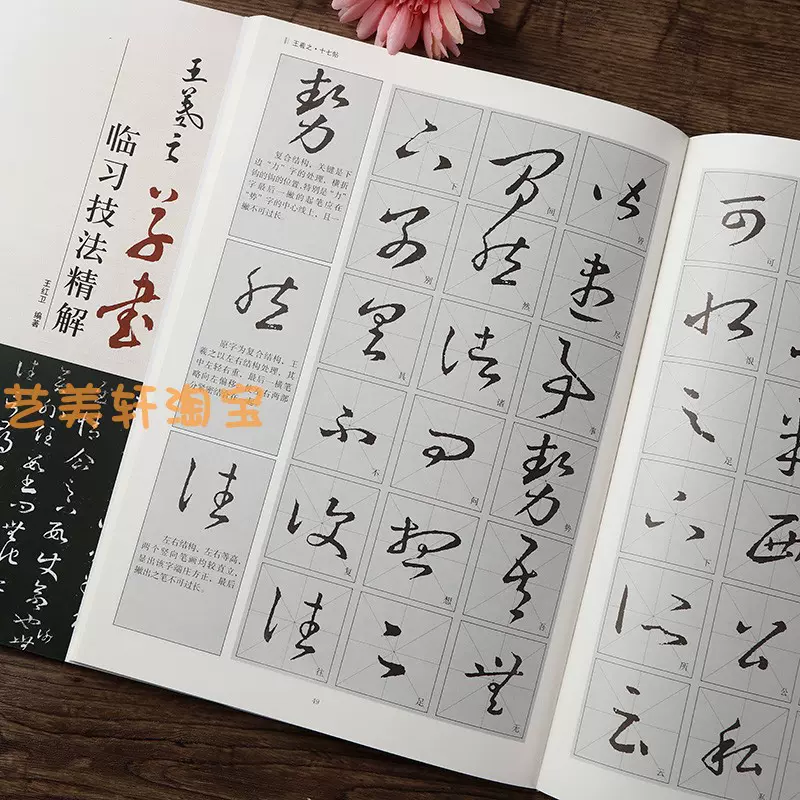 王羲之
草书
临习技法精解
王红卫 编著
艺美轩淘宝
王羲之·十七帖
势
复合结构，关键是下
边“力”字的处理，横折
钩的钩的位置，特别是“力”
字最后一撇的起笔应在
“势”字的中心线上，且一
撇不可过长。
然
原字为复合结构，王
羲之以左右结构处理，其
中左轻右重，最后一横笔
路向左偏移
往
左右结构，左右等高，
两个竖向笔画均较直立，
显出该字端庄方正，最后
撇出之笔不可过长。
皆
尽
事
势
吾
无
间
然
诸
问
想
足
下
别
具
不
复
往
49
可
恨
足
下
所
云
公
私